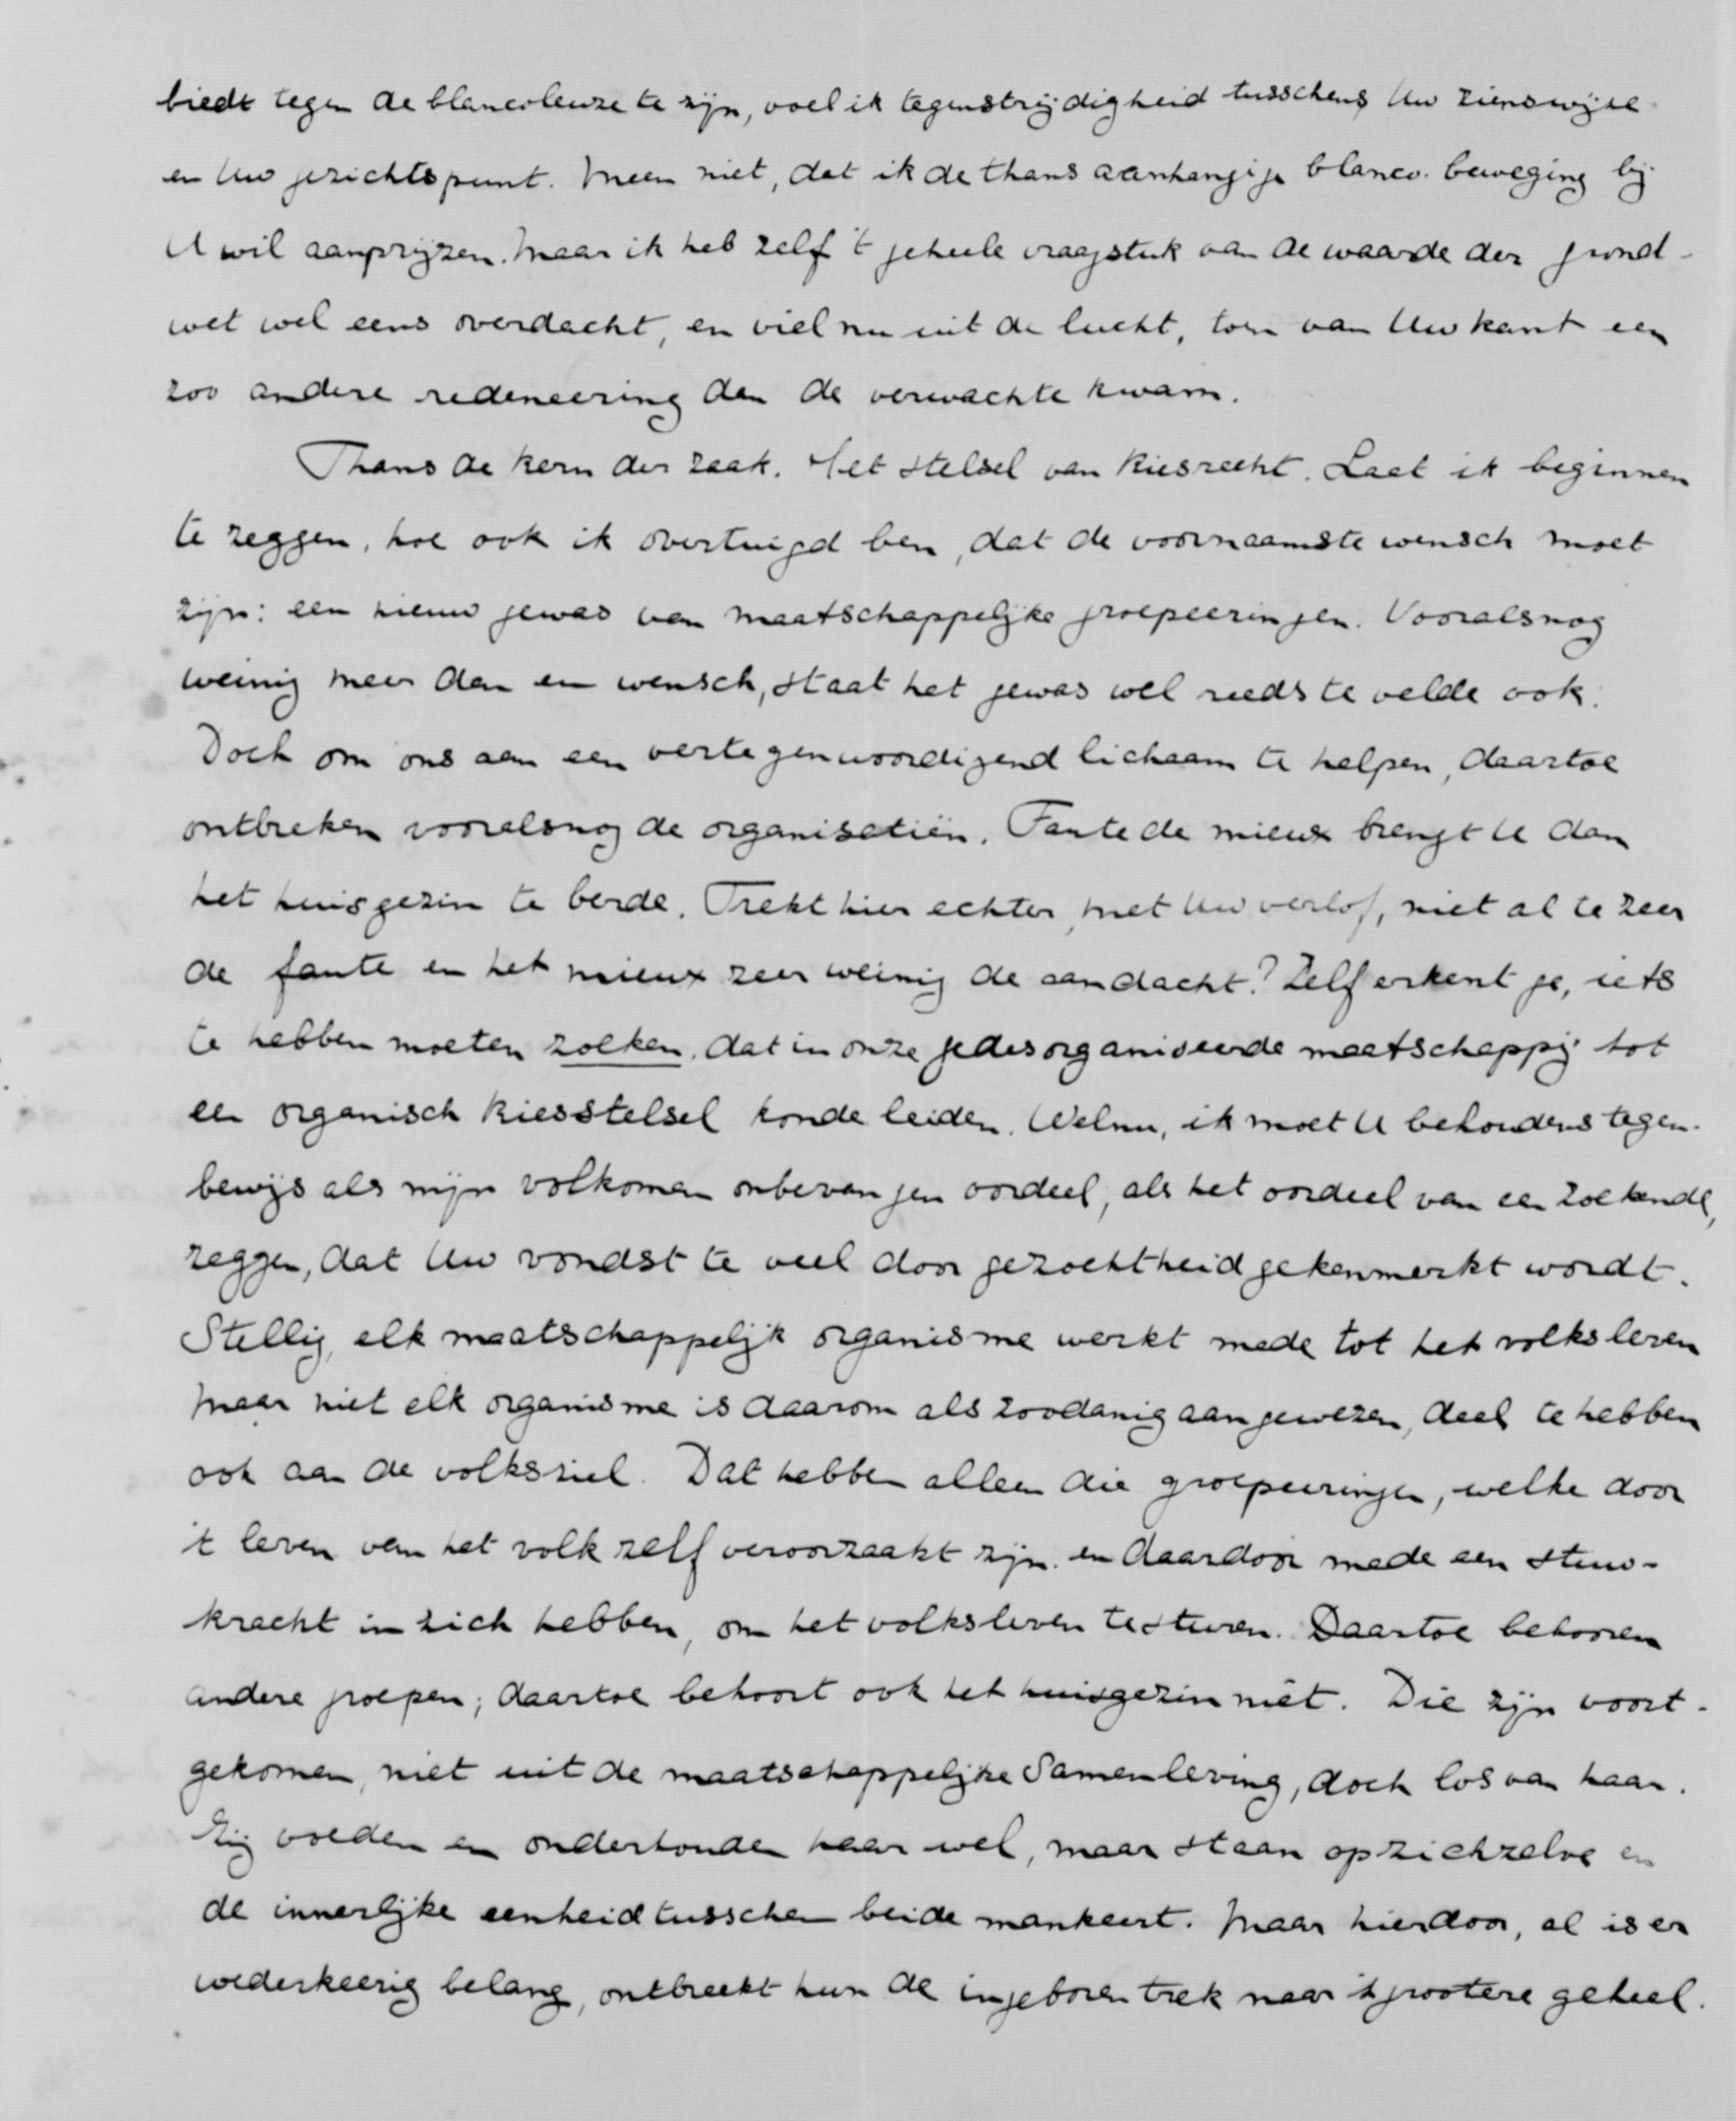 biedt tegen de blancoleuze te zijn, voel ik tegenstrijdigheid tusschens Uw zienswijze
en Uw gezichtspunt. Meen niet, dat ik de thans aanhangige blanco-beweging bij
U wil aanprijzen. Maar ik heb zelf 't geheele vraagstuk van de waarde der grond-
wet wel eens overdacht, en viel nu uit de lucht, toen van Uw kant een
zoo andere redeneering dan de verwachte kwam.
Thans de kern der zaak. Het stelsel van kiesrecht. Laat ik beginnen
te zeggen, hoe ook ik overtuigd ben, dat de voornaamste wensch moet
zijn: een nieuw gewas van maatschappelijke groepeeringen. Vooralsnog
weinig meer dan een wensch, staat het gewas wel reeds te velde ook.
Doch om ons aan een vertegenwoordigend lichaam te helpen, daartoe
ontbreken vooralsnog de organisatiën. Faute de mieux brengt U dan
het huisgezin te berde. Trekt hier echter, met Uw verlof, niet al te zeer
de faute en het mieux zeer weinig de aandacht? Zelf erkent ge, iets
te hebben moeten zoeken, dat in onze gedesorganiseerde maatschappij tot
een organisch kiesstelsel konde leiden. Welnu, ik moet U behoudens tegen-
bewijs als mijn volkomen onbevangen oordeel, als het oordeel van een zoekende,
zeggen, dat Uw vondst te veel door gezochtheid gekenmerkt wordt.
Stellig, elk maatschappelijk organisme werkt mede tot het volksleven
maar niet elk organisme is daarom als zoodanig aangewezen, deel te hebben
ook aan de volksziel. Dat hebben alleen die groepeeringen, welke door
't leven van het volk zelf veroorzaakt zijn en daardoor mede een stuw-
kracht in zich hebben, om het volksleven te sturen. Daartoe behooren
andere groepen; daartoe behoort ook het huisgezin niet. Die zijn voort-
gekomen, niet uit de maatschappelijke Samenleving, doch los van haar.
Zij voeden en onderhouden haar wel, maar staan op zichzelve en
de innerlijke eenheid tusschen beide mankeert. Maar hierdoor, al is er
wederkeerig belang, ontbreekt hun de ingeboren trek naar 't grootere geheel.